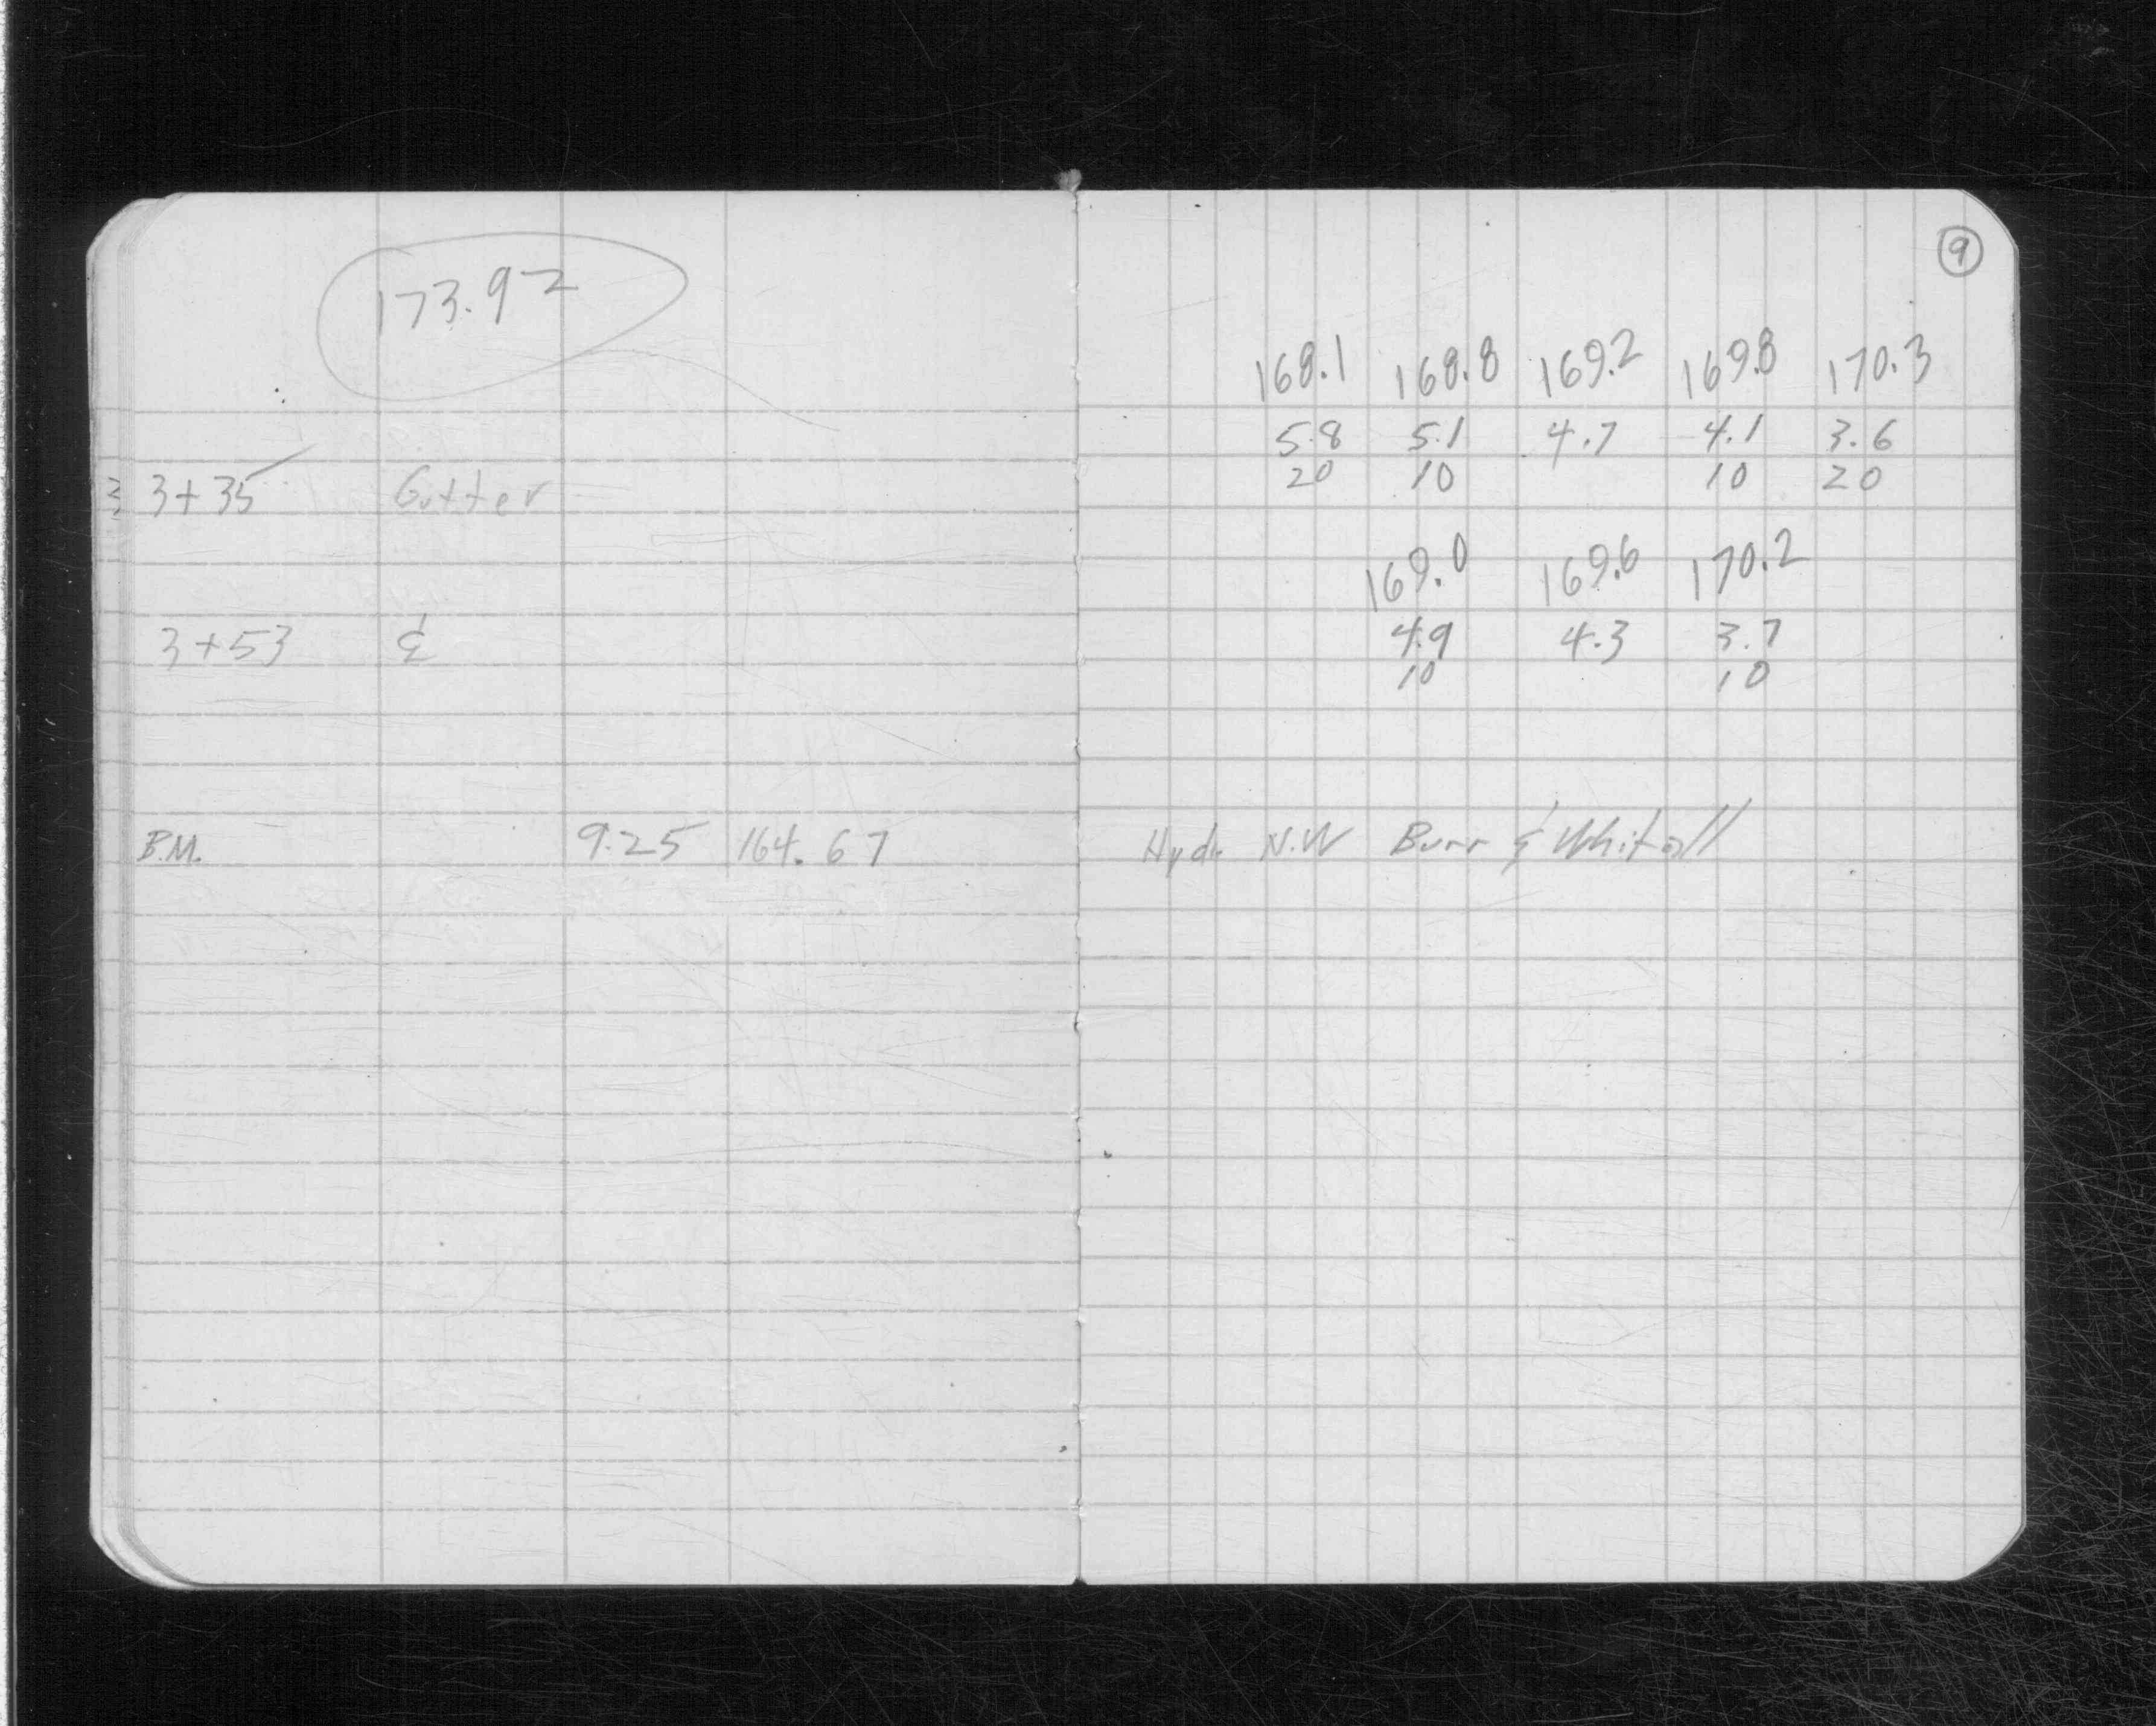 173.92
3+35 Gutter
3+53 &
B.M. 9.25 164.67
9
168.1 168.8 169.2 169.8 170.3
5.8 5.1 4.7 4.1 3.6
20 10 10 20
169.0 169.6 170.2
4.9 4.3 3.7
10 10
Hydr N.W Burr & Whitall